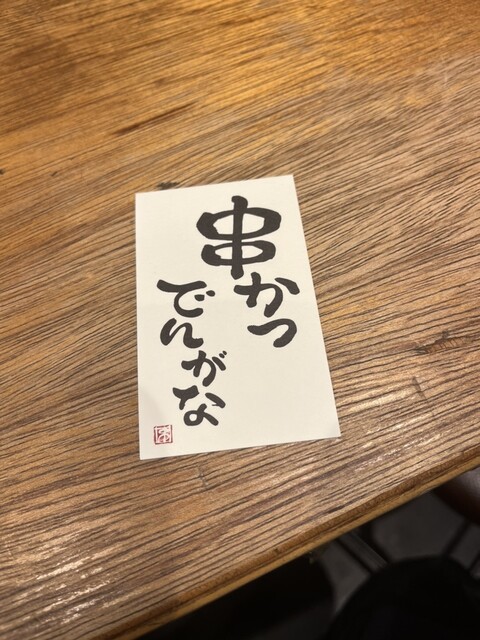 串かつ
でんがな